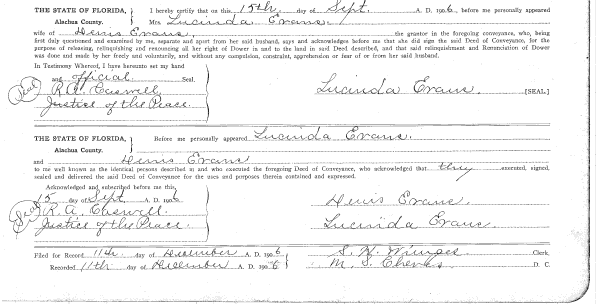 THE STATE OF FLORIDA, I hereby certify that on this 15th. day of Sept. A. D. 1906, before me personally appeared
Alachua County. Mrs Lucinda Evans.
wife of Henis Evans, the grantor in the foregoing conveyance, who, being
first duly questioned and examined by me, separate and apart from her said husband, says and acknowledges before me that she did sign the said Deed of Conveyance, for the
purpose of releasing, relinquishing and renouncing all her right of Dower in and to the land in said Deed described, and that said relinquishment and Renunciation of Dower
was done and made by her freely and voluntarily, and without any compulsion, constraint, apprehension or fear of or from her said husband.
In Testimony Whereof, I have hereunto set my hand
and official Seal.
Seal R. A. Caswell Lucinda Evans. [SEAL]
Justice of the Peace.
THE STATE OF FLORIDA, Before me personally appeared Lucinda Evans.
Alachua County.
and Henis Evans
to me well known as the identical persons described in and who executed the foregoing Deed of Conveyance, who acknowledged that they executed, signed,
sealed and delivered the said Deed of Conveyance for the uses and purposes therein contained and expressed.
Acknowledged and subscribed before me this,
15 day of Sept A. D. 1906 Henis Evans
Seal R. A. Caswell.
Justice of the Peace. Lucinda Evans.
Filed for Record 11th day of December A. D. 1906 S. H. Wienges Clerk.
Recorded 11th day of December A. D. 1906 M. S. Cheves D. C.